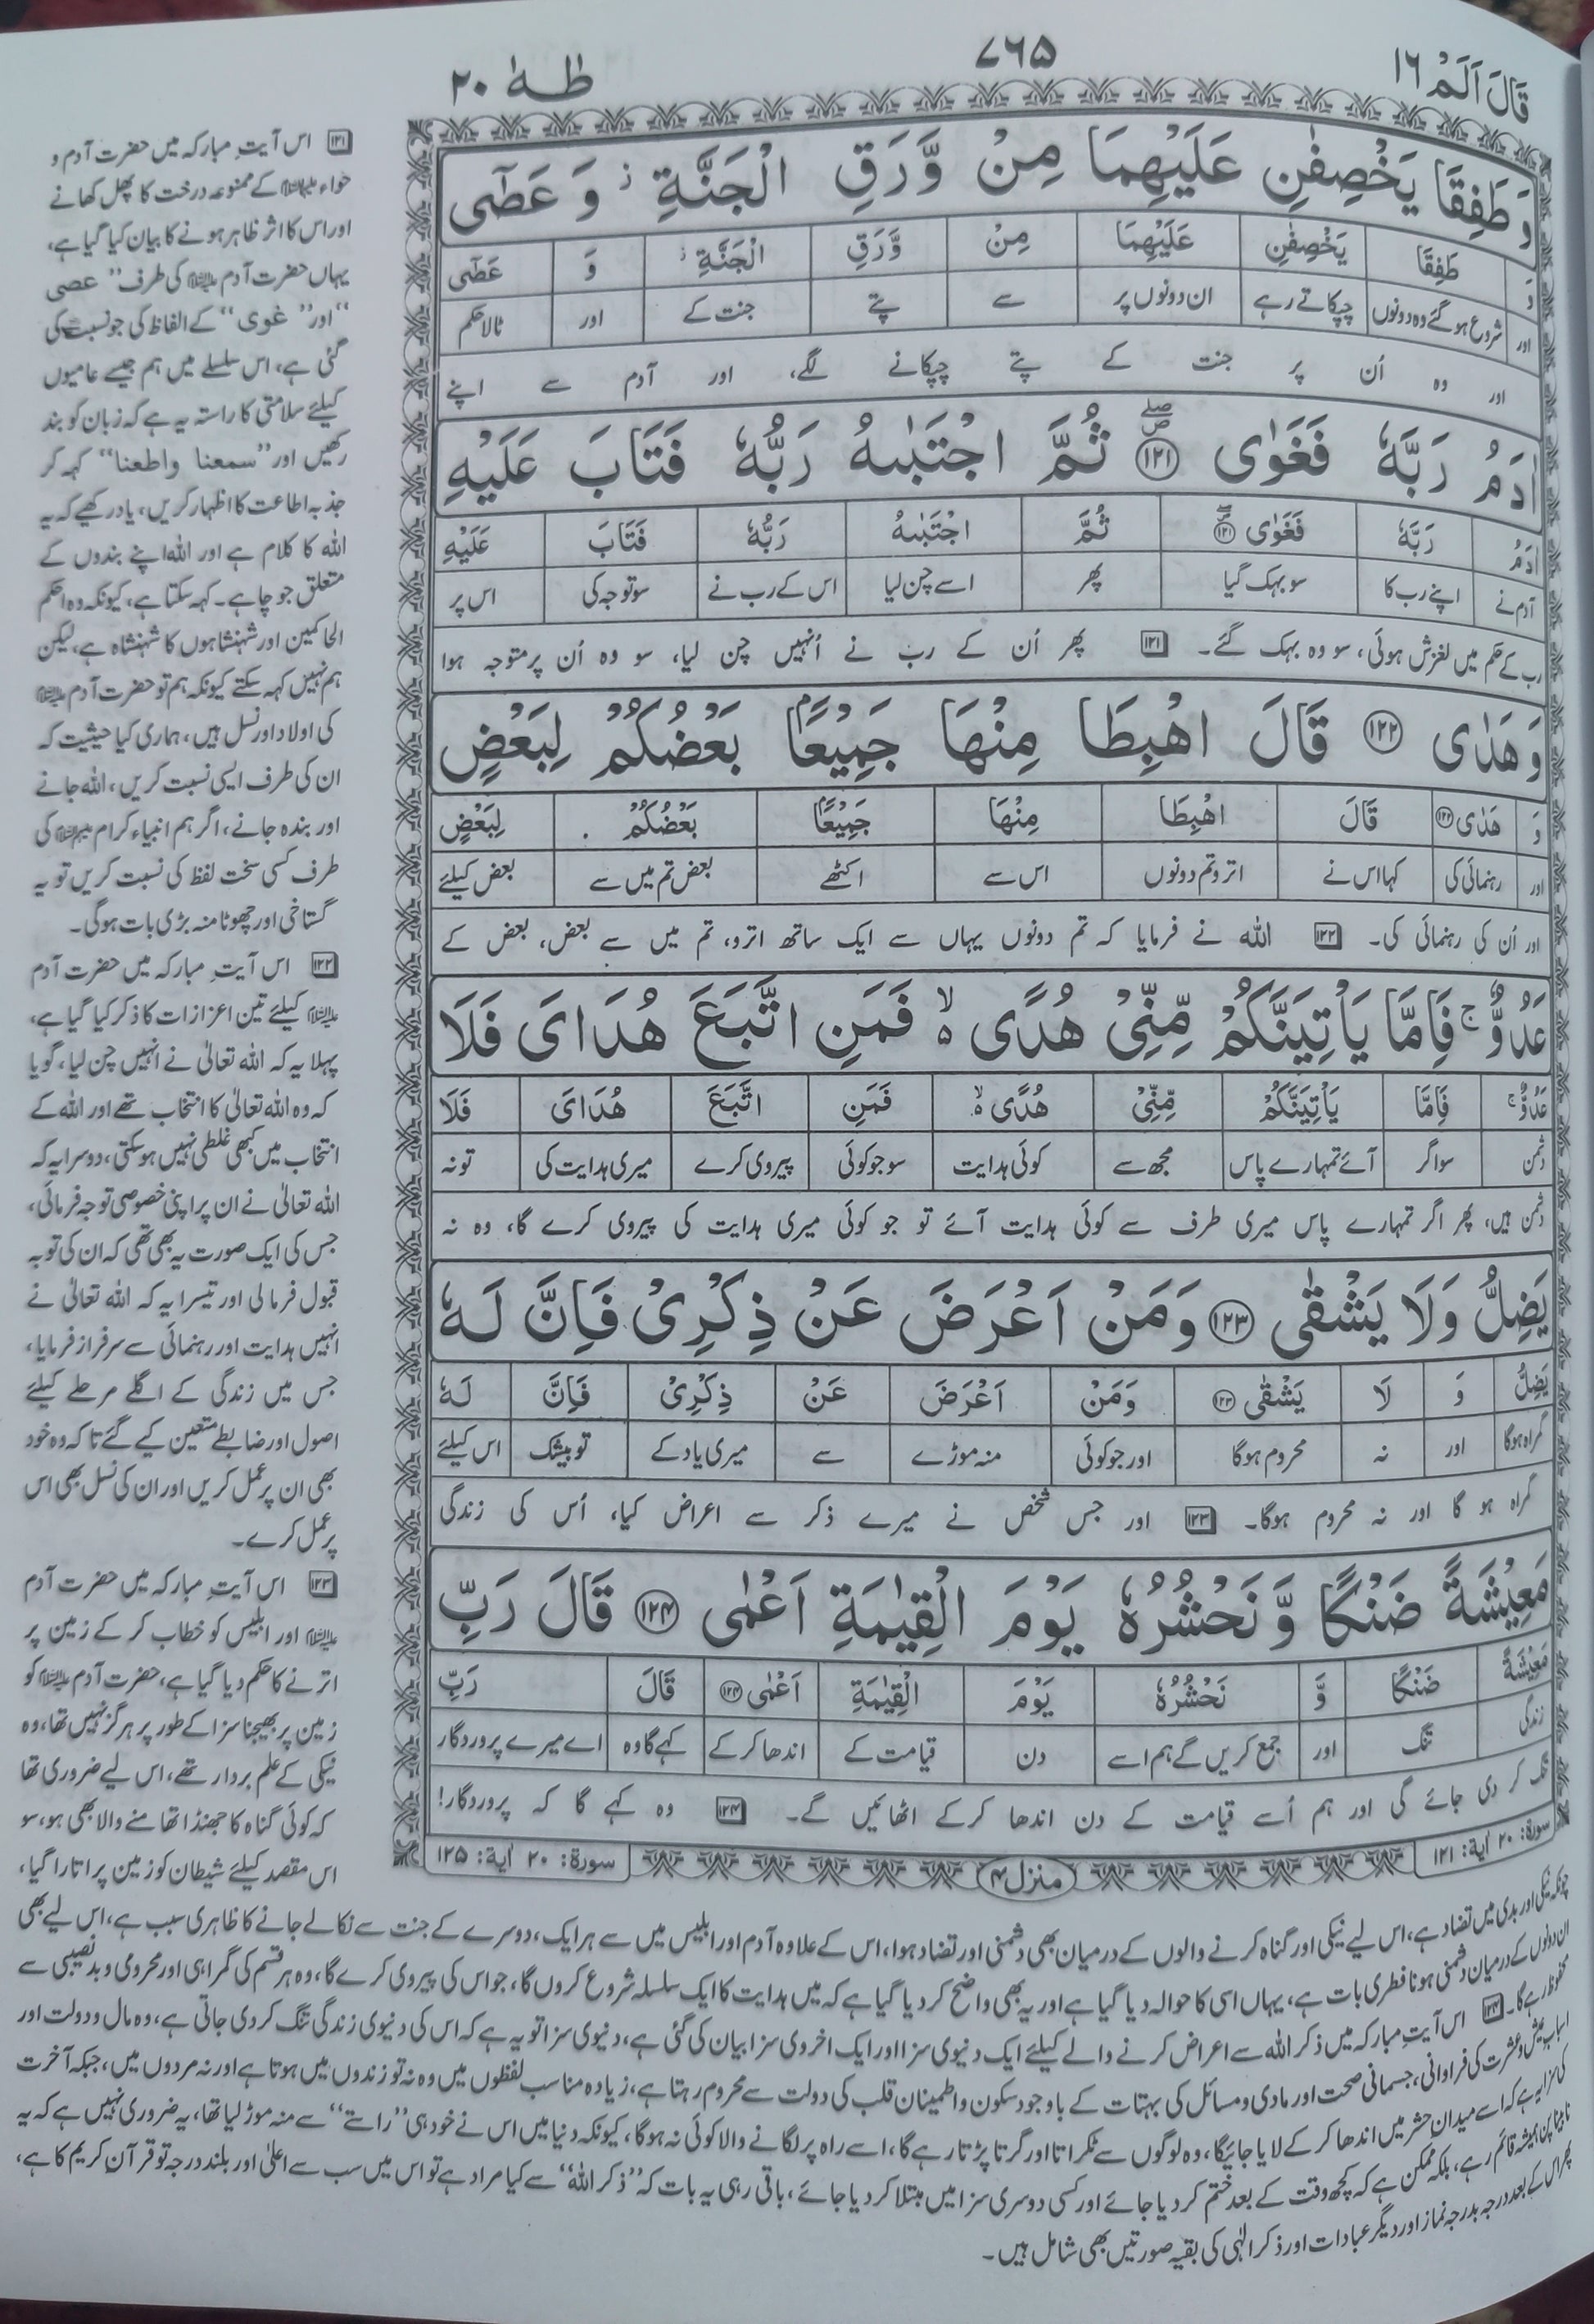 قَالَ اَلَمْ ۱۶
۷۶۵
طٰهٰ ۲۰
وَ طَفِقَا يَخْصِفٰنِ عَلَيْهِمَا مِنْ وَّرَقِ الْجَنَّةِ ز وَ عَصٰۤى
وَ طَفِقَا يَخْصِفٰنِ عَلَيْهِمَا مِنْ وَّرَقِ الْجَنَّةِ ز وَ عَصٰۤى
اور شروع ہوگئے وہ دونوں چپکاتے رہے ان دونوں پر سے پتے جنت کے اور ٹالا حکم
اور وہ اُن پر جنت کے پتے چپکانے لگے، اور آدم سے اپنے
اٰدَمُ رَبَّهٗ فَغَوٰى ۝۱۲۱ ثُمَّ اجْتَبٰىهُ رَبُّهٗ فَتَابَ عَلَيْهِ
اٰدَمُ رَبَّهٗ فَغَوٰى ۝۱۲۱ ثُمَّ اجْتَبٰىهُ رَبُّهٗ فَتَابَ عَلَيْهِ
آدم نے اپنے رب کا سو بہک گیا پھر اسے چن لیا اس کے رب نے سو توجہ کی اس پر
رب کے حکم میں لغزش ہوئی، سو وہ بہک گئے۔ ۱۲۱ پھر اُن کے رب نے اُنہیں چن لیا، سو وہ اُن پر متوجہ ہوا
وَ هَدٰى ۝۱۲۲ قَالَ اهْبِطَا مِنْهَا جَمِيْعًۢا بَعْضُكُمْ لِبَعْضٍ
وَ هَدٰى ۝۱۲۲ قَالَ اهْبِطَا مِنْهَا جَمِيْعًۢا بَعْضُكُمْ لِبَعْضٍ
اور رہنمائی کی کہا اس نے اترو تم دونوں اس سے اکٹھے بعض تم میں سے بعض کیلئے
اور اُن کی رہنمائی کی۔ ۱۲۲ اللہ نے فرمایا کہ تم دونوں یہاں سے ایک ساتھ اترو، تم میں سے بعض، بعض کے
عَدُوٌّ ج فَاِمَّا يَاْتِيَنَّكُمْ مِّنِّيْ هُدًى ۵ لا فَمَنِ اتَّبَعَ هُدَايَ فَلَا
عَدُوٌّ ج فَاِمَّا يَاْتِيَنَّكُمْ مِّنِّيْ هُدًى ۵ لا فَمَنِ اتَّبَعَ هُدَايَ فَلَا
دشمن سو اگر آئے تمہارے پاس مجھ سے کوئی ہدایت سو جو کوئی پیروی کرے میری ہدایت کی تو نہ
دشمن ہیں، پھر اگر تمہارے پاس میری طرف سے کوئی ہدایت آئے تو جو کوئی میری ہدایت کی پیروی کرے گا، وہ نہ
يَضِلُّ وَلَا يَشْقٰى ۝۱۲۳ وَمَنْ اَعْرَضَ عَنْ ذِكْرِيْ فَاِنَّ لَهٗ
يَضِلُّ وَ لَا يَشْقٰى ۝۱۲۳ وَمَنْ اَعْرَضَ عَنْ ذِكْرِيْ فَاِنَّ لَهٗ
گمراہ ہوگا اور نہ محروم ہوگا اور جو کوئی منہ موڑے سے میری یاد کے تو بیشک اس کیلئے
گمراہ ہو گا اور نہ محروم ہوگا۔ ۱۲۳ اور جس شخص نے میرے ذکر سے اعراض کیا، اُس کی زندگی
مَعِيْشَةً ضَنْكًا وَّ نَحْشُرُهٗ يَوْمَ الْقِيٰمَةِ اَعْمٰى ۝۱۲۴ قَالَ رَبِّ
مَعِيْشَةً ضَنْكًا وَّ نَحْشُرُهٗ يَوْمَ الْقِيٰمَةِ اَعْمٰى ۝۱۲۴ قَالَ رَبِّ
زندگی تنگ اور جمع کریں گے ہم اسے دن قیامت کے اندھا کرکے کہے گا وہ اے میرے پروردگار
تنگ کر دی جائے گی اور ہم اُسے قیامت کے دن اندھا کرکے اٹھائیں گے۔ ۱۲۴ وہ کہے گا کہ پروردگار!
سورۃ: ۲۰ اٰیة: ۱۲۱
منزل ۴
سورۃ: ۲۰ اٰیة: ۱۲۵
۱۲۱ اس آیتِ مبارکہ میں حضرت آدم و
حواء علیہما السلام کے ممنوعہ درخت کا پھل کھانے
اور اس کا اثر ظاہر ہونے کا بیان کیا گیا ہے،
یہاں حضرت آدم علیہ السلام کی طرف ”عصی
“ اور ”غوی“ کے الفاظ کی جو نسبت کی
گئی ہے، اس سلسلے میں ہم جیسے عامیوں
کیلئے سلامتی کا راستہ یہ ہے کہ زبان کو بند
رکھیں اور ”سمعنا واطعنا“ کہہ کر
جذبہ اطاعت کا اظہار کریں، یاد رکھیے کہ یہ
اللہ کا کلام ہے اور اللہ اپنے بندوں کے
متعلق جو چاہے۔ کہہ سکتا ہے، کیونکہ وہ احکم
الحاکمین اور شہنشاہوں کا شہنشاہ ہے، لیکن
ہم نہیں کہہ سکتے کیونکہ ہم تو حضرت آدم علیہ السلام
کی اولاد اور نسل ہیں، ہماری کیا حیثیت کہ
ان کی طرف ایسی نسبت کریں، اللہ جانے
اور بندہ جانے، اگر ہم انبیاء کرام علیہم السلام کی
طرف کسی سخت لفظ کی نسبت کریں تو یہ
گستاخی اور چھوٹا منہ بڑی بات ہوگی۔
۱۲۲ اس آیتِ مبارکہ میں حضرت آدم
علیہ السلام کیلئے تین اعزازات کا ذکر کیا گیا ہے،
پہلا یہ کہ اللہ تعالیٰ نے انہیں چن لیا، گویا
کہ وہ اللہ تعالیٰ کا انتخاب تھے اور اللہ کے
انتخاب میں کبھی غلطی نہیں ہوسکتی، دوسرا یہ کہ
اللہ تعالیٰ نے ان پر اپنی خصوصی توجہ فرمائی،
جس کی ایک صورت یہ بھی تھی کہ ان کی توبہ
قبول فرمالی اور تیسرا یہ کہ اللہ تعالیٰ نے
انہیں ہدایت اور رہنمائی سے سرفراز فرمایا،
جس میں زندگی کے اگلے مرحلے کیلئے
اصول اور ضابطے متعین کیے گئے تاکہ وہ خود
بھی ان پر عمل کریں اور ان کی نسل بھی اس
پر عمل کرے۔
۱۲۳ اس آیتِ مبارکہ میں حضرت آدم
علیہ السلام اور ابلیس کو خطاب کر کے زمین پر
اترنے کا حکم دیا گیا ہے، حضرت آدم علیہ السلام کو
زمین پر بھیجنا سزا کے طور پر ہرگز نہیں تھا، وہ
نیکی کے علم بردار تھے، اس لیے ضروری تھا
کہ کوئی گناہ کا جھنڈا تھامنے والا بھی ہو، سو
اس مقصد کیلئے شیطان کو زمین پر اتارا گیا،
چونکہ نیکی اور بدی میں تضاد ہے، اس لیے نیکی اور گناہ کرنے والوں کے درمیان بھی دشمنی اور تضاد ہوا، اس کے علاوہ آدم اور ابلیس میں سے ہر ایک، دوسرے کے جنت سے نکالے جانے کا ظاہری سبب ہے، اس لیے بھی
ان دونوں کے درمیان دشمنی ہونا فطری بات ہے، یہاں اسی کا حوالہ دیا گیا ہے اور یہ بھی واضح کردیا گیا ہے کہ میں ہدایت کا ایک سلسلہ شروع کروں گا، جو اس کی پیروی کرے گا، وہ ہر قسم کی گمراہی اور محرومی و بدنصیبی سے
محفوظ رہے گا۔ ۱۲۴ اس آیتِ مبارکہ میں ذکر اللہ سے اعراض کرنے والے کیلئے ایک دنیوی سزا اور ایک اخروی سزا بیان کی گئی ہے، دنیوی سزا تو یہ ہے کہ اس کی دنیوی زندگی تنگ کردی جاتی ہے، وہ مال و دولت اور
اسباب عیش و عشرت کی فراوانی، جسمانی صحت اور مادی وسائل کی بہتات کے باوجود سکون و اطمینان قلب کی دولت سے محروم رہتا ہے، زیادہ مناسب لفظوں میں وہ نہ تو زندوں میں ہوتا ہے اور نہ مردوں میں، جبکہ آخرت
کی سزا یہ ہے کہ اسے میدانِ حشر میں اندھا کرکے لایا جائیگا، وہ لوگوں سے ٹکراتا اور گرتا پڑتا رہے گا، اسے راہ پر لگانے والا کوئی نہ ہوگا، کیونکہ دنیا میں اس نے خود ہی ”راستے“ سے منہ موڑ لیا تھا، یہ ضروری نہیں ہے کہ یہ
نابینا پن ہمیشہ قائم رہے، بلکہ ممکن ہے کہ کچھ وقت کے بعد ختم کردیا جائے اور کسی دوسری سزا میں مبتلا کردیا جائے، باقی رہی یہ بات کہ ”ذکر اللہ“ سے کیا مراد ہے تو اس میں سب سے اعلیٰ اور بلند درجہ تو قرآنِ کریم کا ہے،
پھر اس کے بعد درجہ بدرجہ نماز اور دیگر عبادات اور ذکر الٰہی کی بقیہ صورتیں بھی شامل ہیں۔